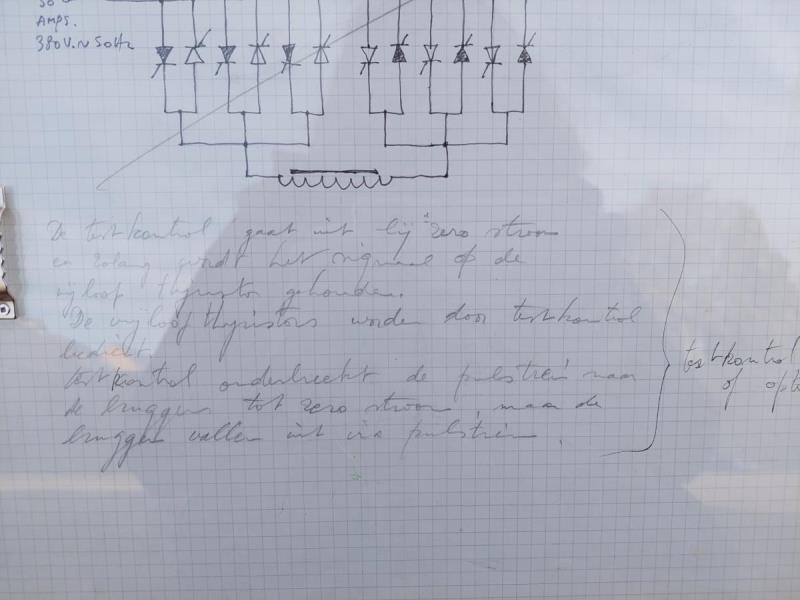 AMPS.
380V.~ 50Hz
De testkontrol gaat uit bij "zero stroom
en zolang wordt het signaal op de
vrijloop thyristor gehouden.
De vrijloop thyristors worden door testkontrol
bedient.
testkontrol onderbreekt de pulstrein naar
de bruggen tot zero stroom, maar de
bruggen vallen uit via pulstrein.
testkontrol
of opto